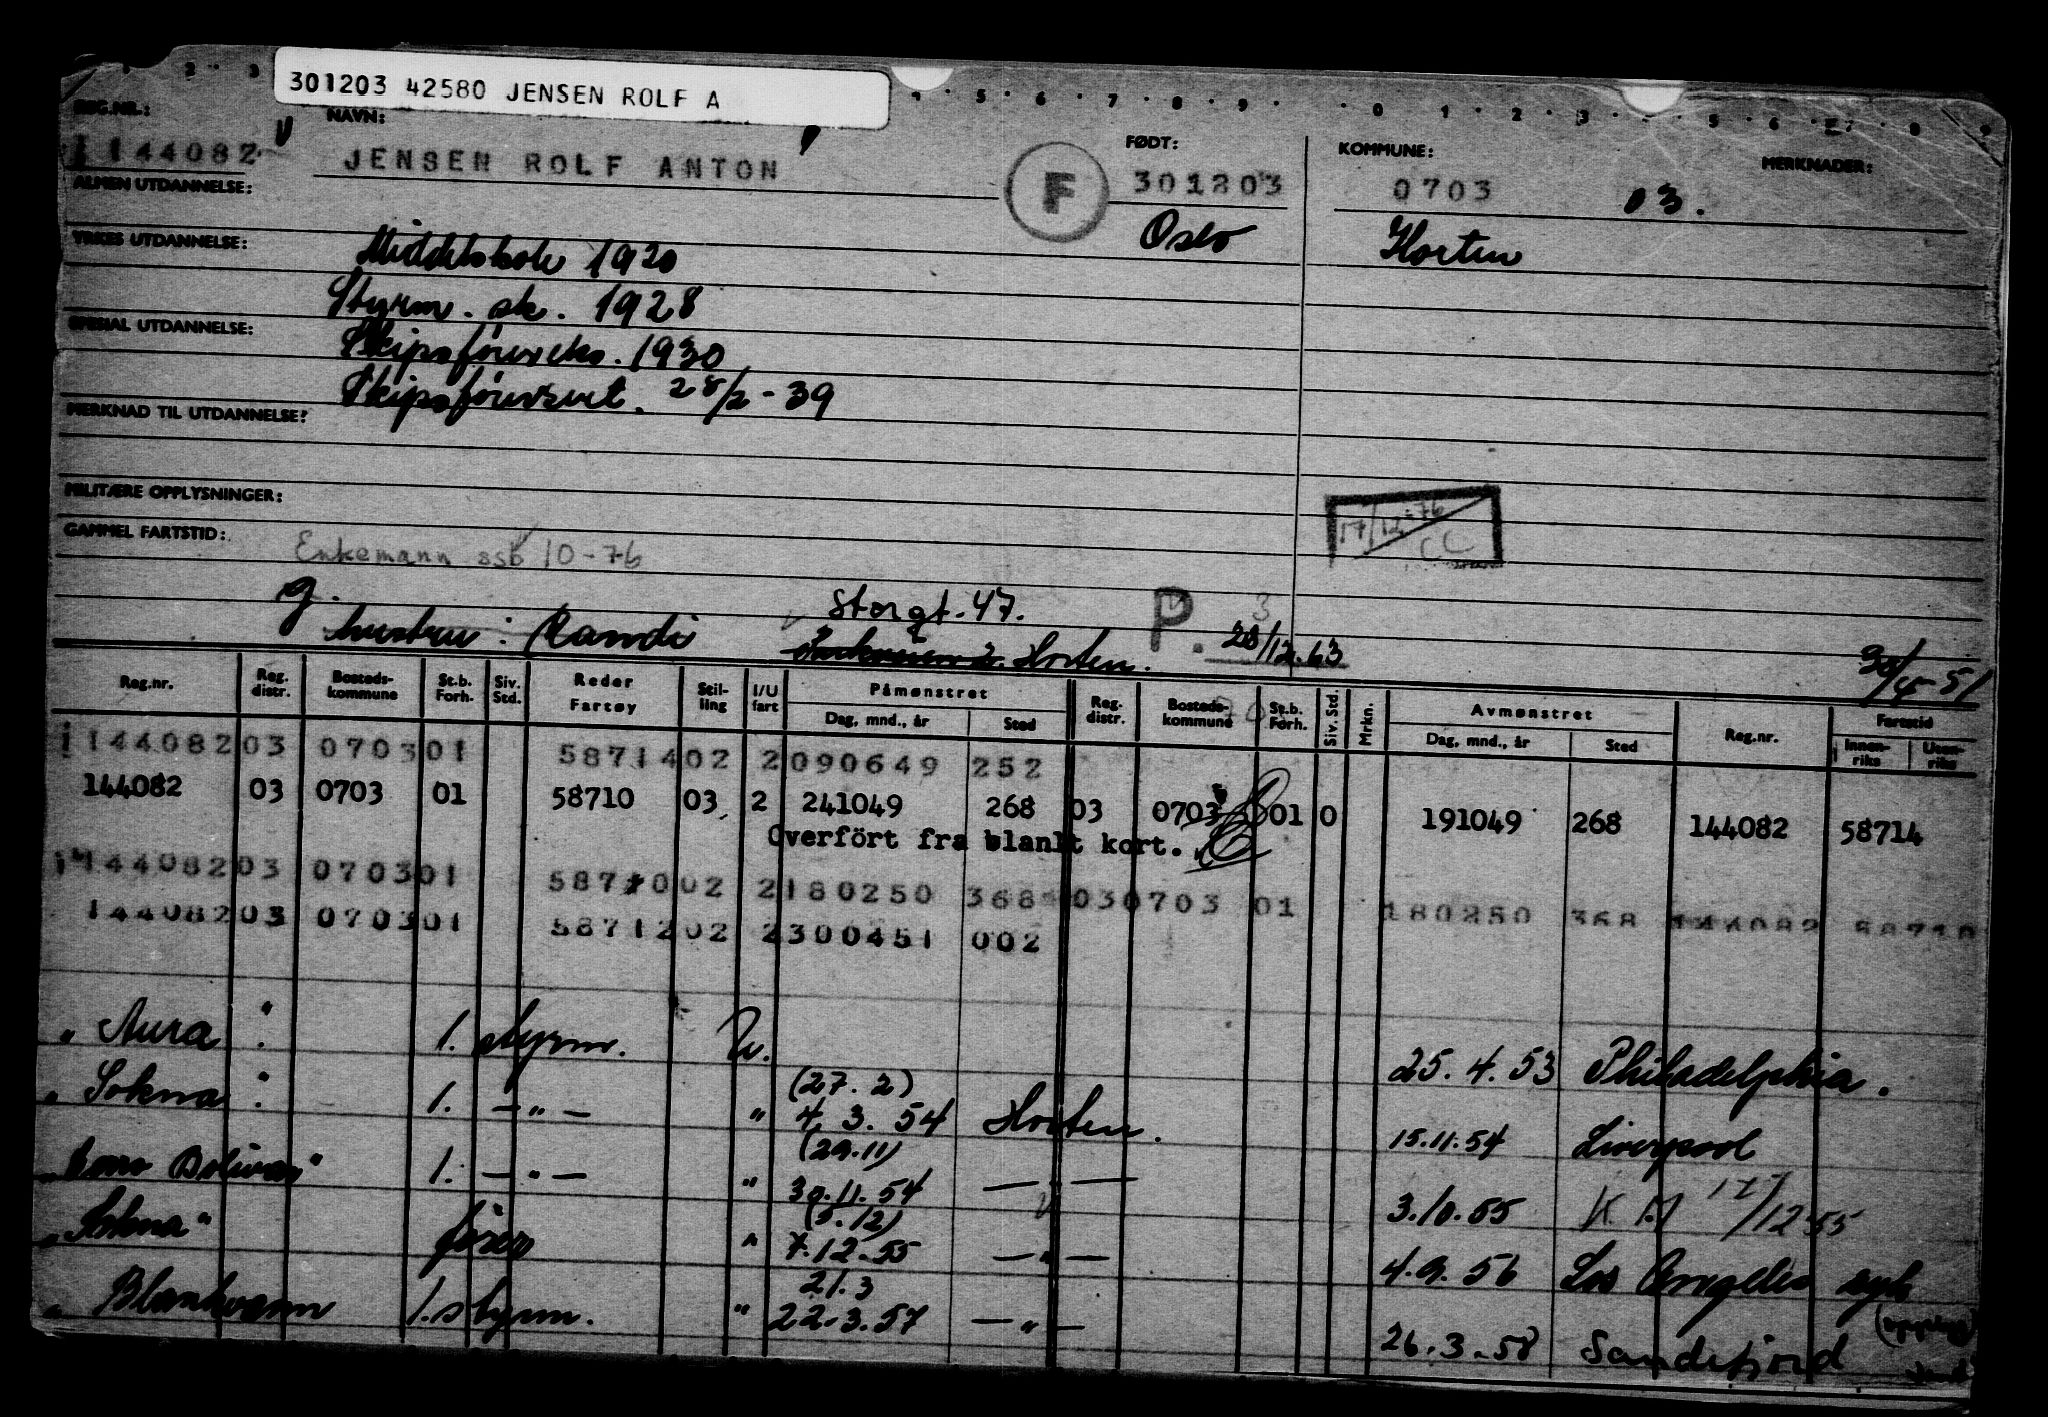 301203 42580 JENSEN ROLF A
REG.NR.: NAVN: FØDT: KOMMUNE: MERKNADER:
144082 JENSEN ROLF ANTON F 301203 0703 03.
ALMEN UTDANNELSE: Oslo Horten
YRKES UTDANNELSE: Middelskole 1920
Styrm. sk. 1928
SPESIAL UTDANNELSE: Skipsførereks. 1930
Skipsførersert. 28/2-39
MERKNAD TIL UTDANNELSE:
MILITÆRE OPPLYSNINGER: 17/12-76 CC
GAMMEL FARTSTID: Enkemann ssb 10-76
g. Storgt. 47. P. 3
hustru: Randi Horten. 28/12.63 30/5-51
Reg.nr. Reg. distr. Bosteds-kommune St.b. Forh. Siv. Std. Reder Fartøy Stil-ling I/U fart Påmønstret Dag, mnd., år Sted Reg. distr. Bosteds-kommune St.b. Forh. Siv. Std. Mrkn. Avmønstret Dag, mnd., år Sted Reg.nr. Fartstid Innen-riks Uten-riks
144082 03 0703 01 58714 02 2 090649 252
144082 03 0703 01 58710 03 2 241049 268 03 0703 01 0 191049 268 144082 58714
Overfört fra blankt kort.
144082 03 0703 01 58710 02 2 180250 368 03 0703 01 180250 368 144082 58710
144082 03 0703 01 58712 02 2 300451 002
" Aura " 1. styrm. U. 25.4.53 Philadelphia.
(27.2)
" Sokna " 1. — " — " 4.3.54 Horten. 15.11.54 Liverpool
(29.11)
" Bolivar " 1. — " — " 30.11.54 — " — 3.10.55 17/12 55
(5.12)
" " fører " 7.12.55 — " — 4.9.56 Los Angeles syk
21.3
" Blankvann 1. styrm. " 22.3.57 — " — 26.3.58 Sandefjord